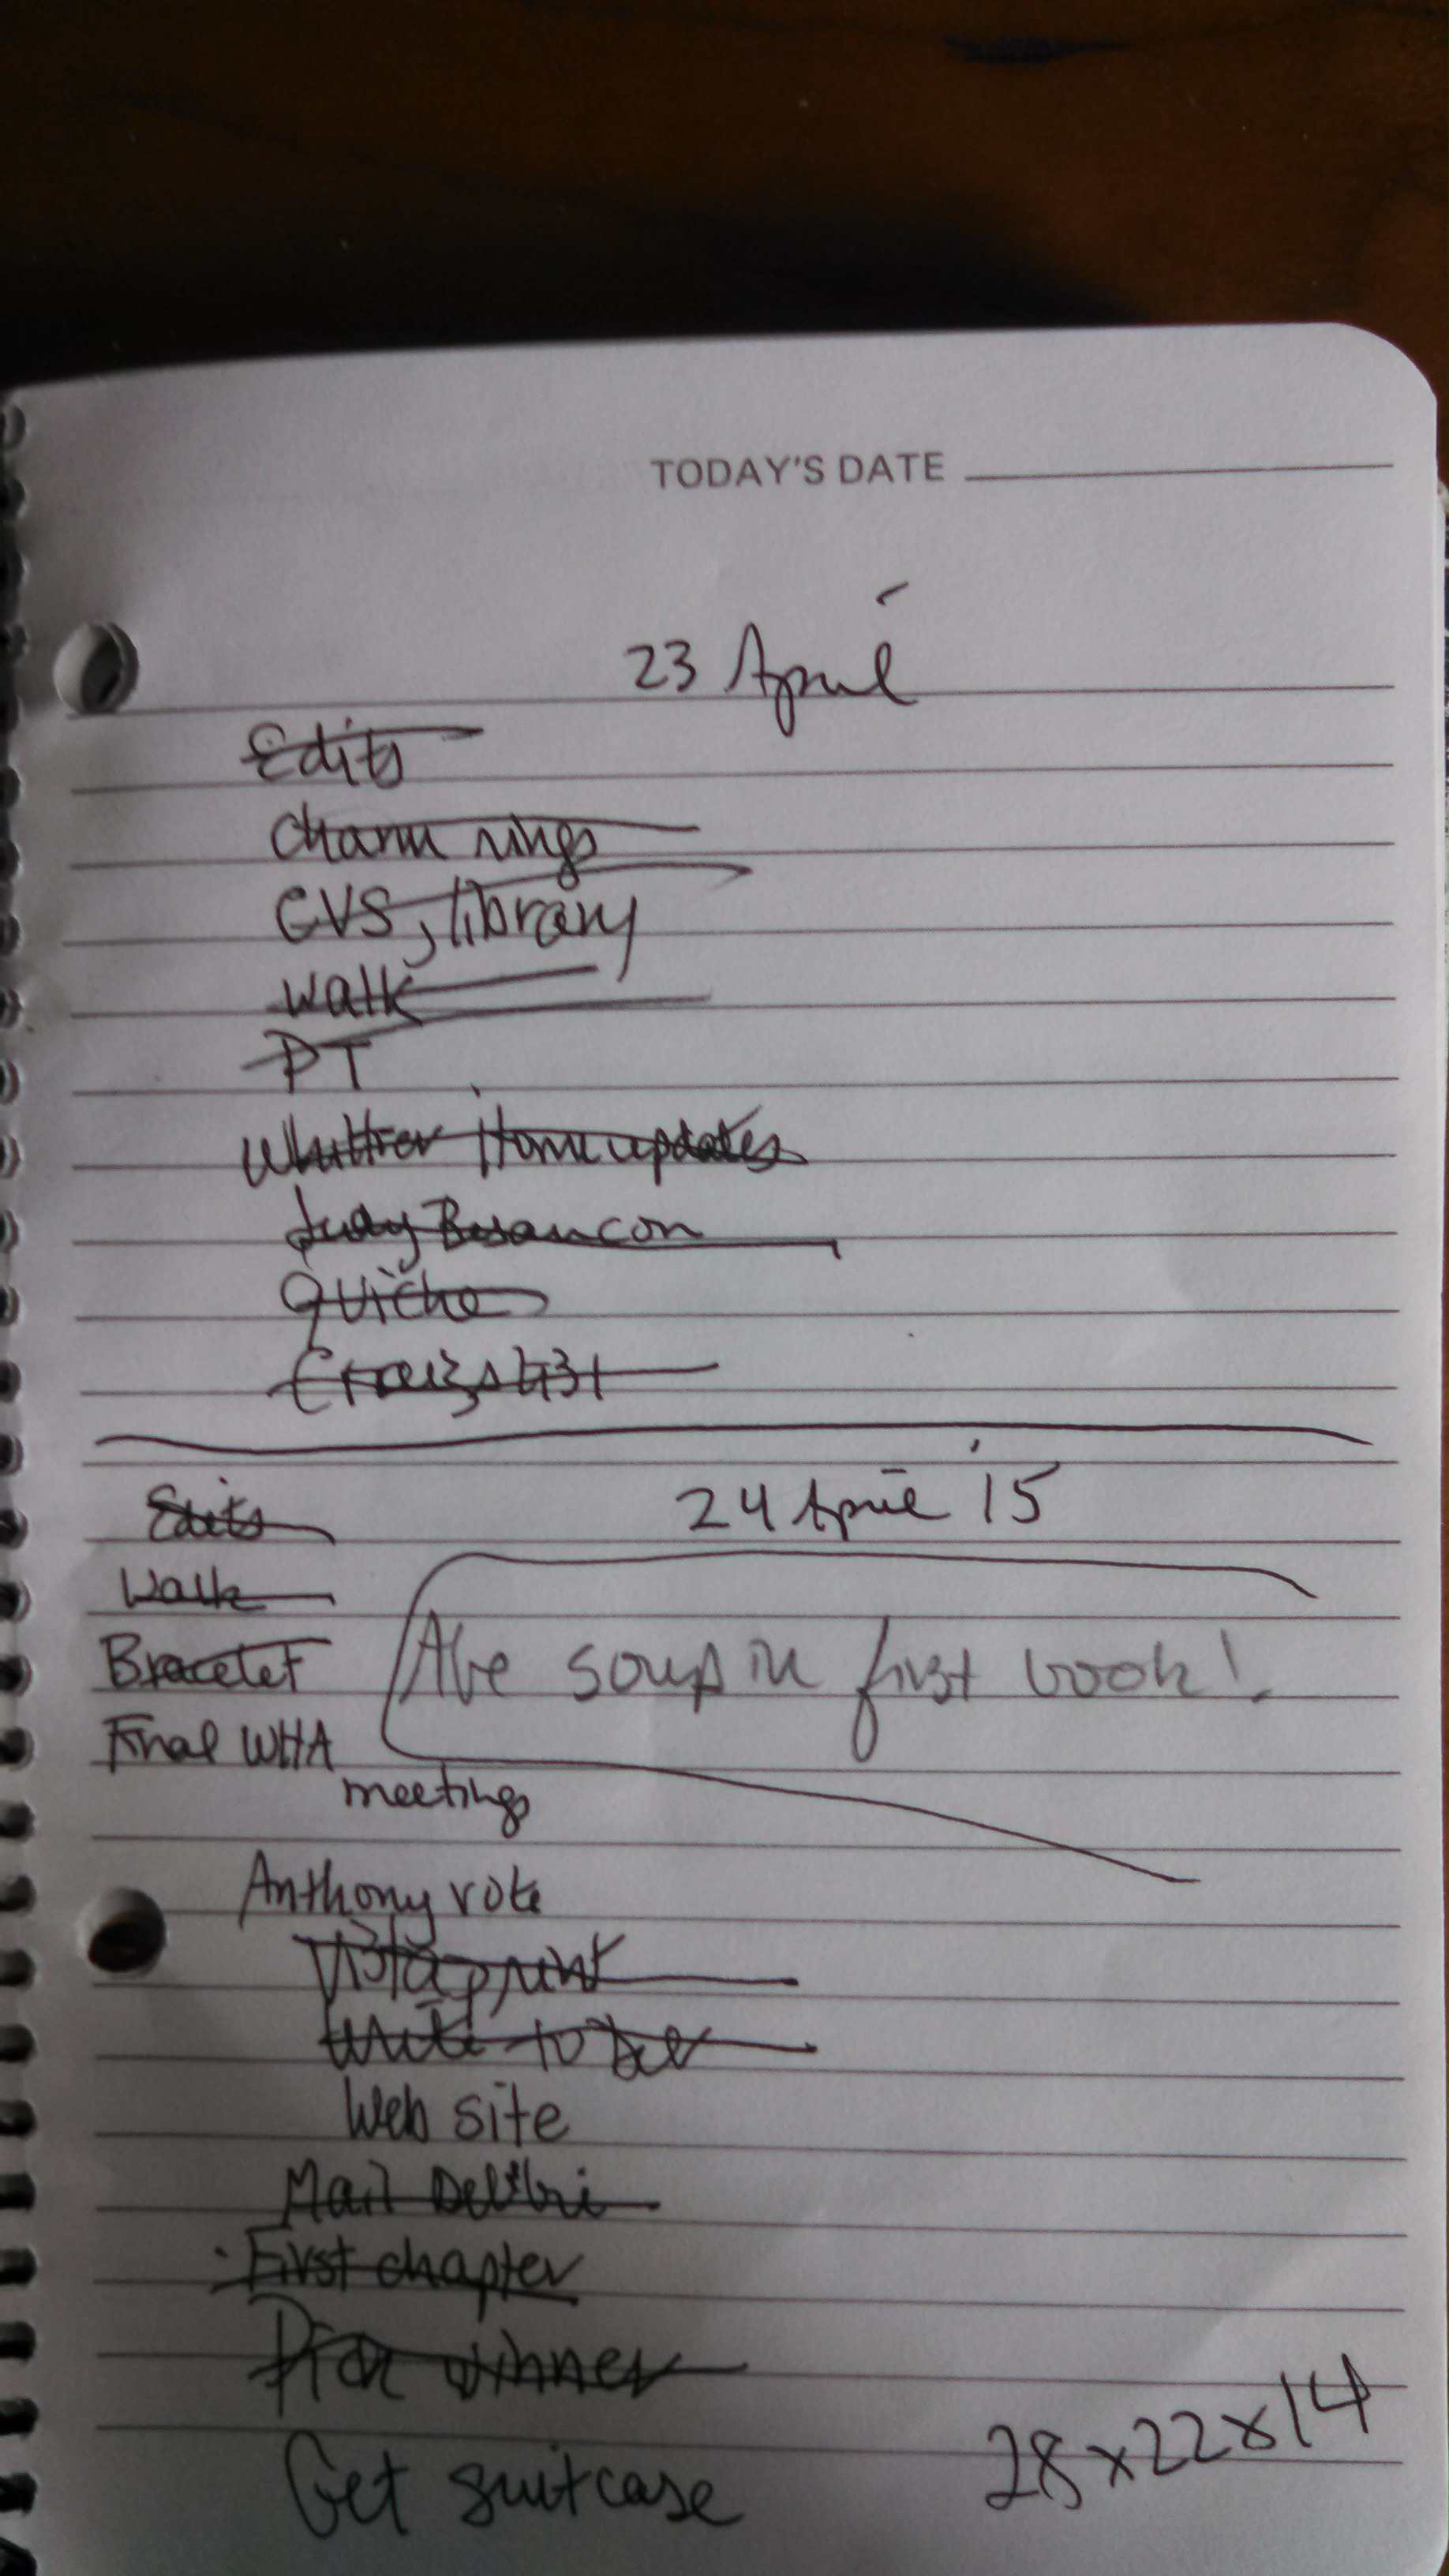 TODAY'S DATE
23 April
Edits
Charm rings
CVS, library
Walk
PT
Whittier Home updates
Judy Besancon
Quiche
24 April '15
Edits
Walk
Bracelet
Abe soup in first book!
Final WHA
meetings
Anthony vote
Vistaprint
Write to
Web site
Mail
First chapter
Pick winner
Get suitcase
28x22x14